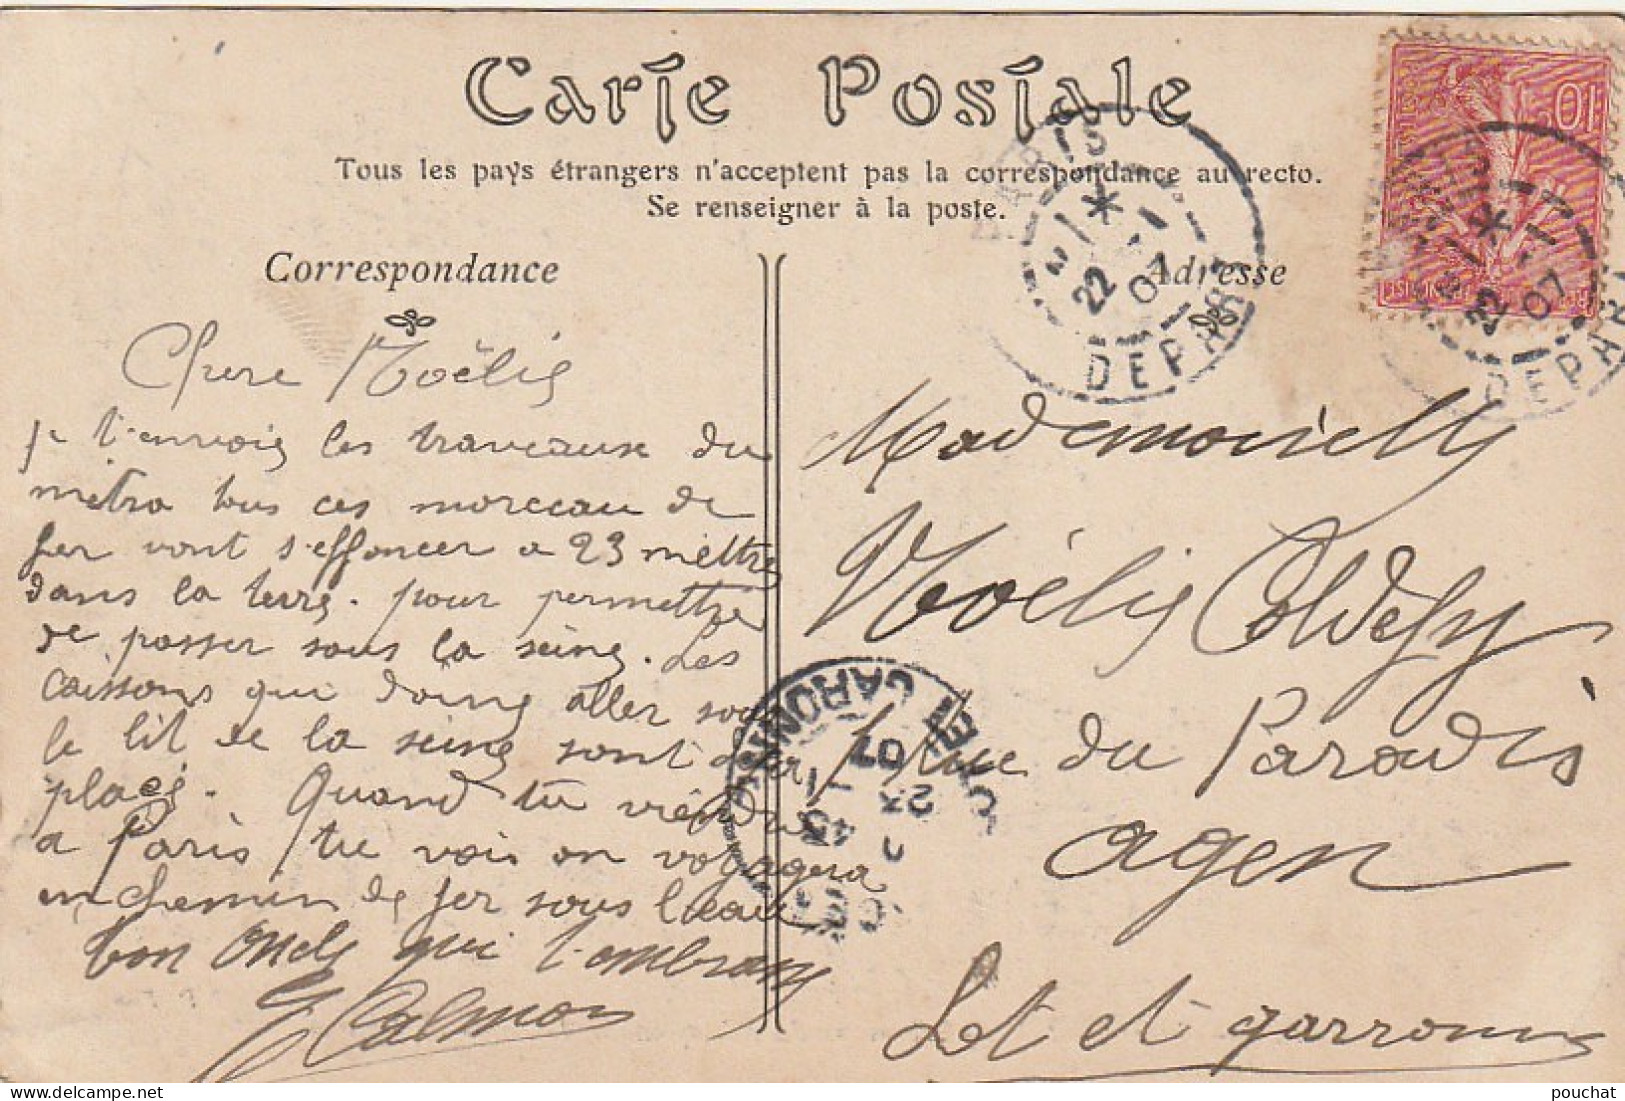 Carte Postale
Tous les pays étrangers n'acceptent pas la correspondance au recto.
Se renseigner à la poste.
Correspondance
Adresse
PARIS
22 1 07
DEPART
PARIS
22 07
DEPART
10
Chere Noëlie
je t'envoie les traveaux du
métro tous ces morceau de
fer vont s'effoncer a 23 mettre
dans la terre. pour permettre
de passer sous la seine. Les
caissons qui doive aller sous
le lit de la seine sont der
placé. Quand tu viendra
a Paris tu vois on voyagera
en chemin de fer sous l'eau
ton oncle qui t'embrasse
Calmon
Mademoiselle
Noélie
rue du Paradis
agen
Lot et garronne
GARONNE
23 1 07
pouchat